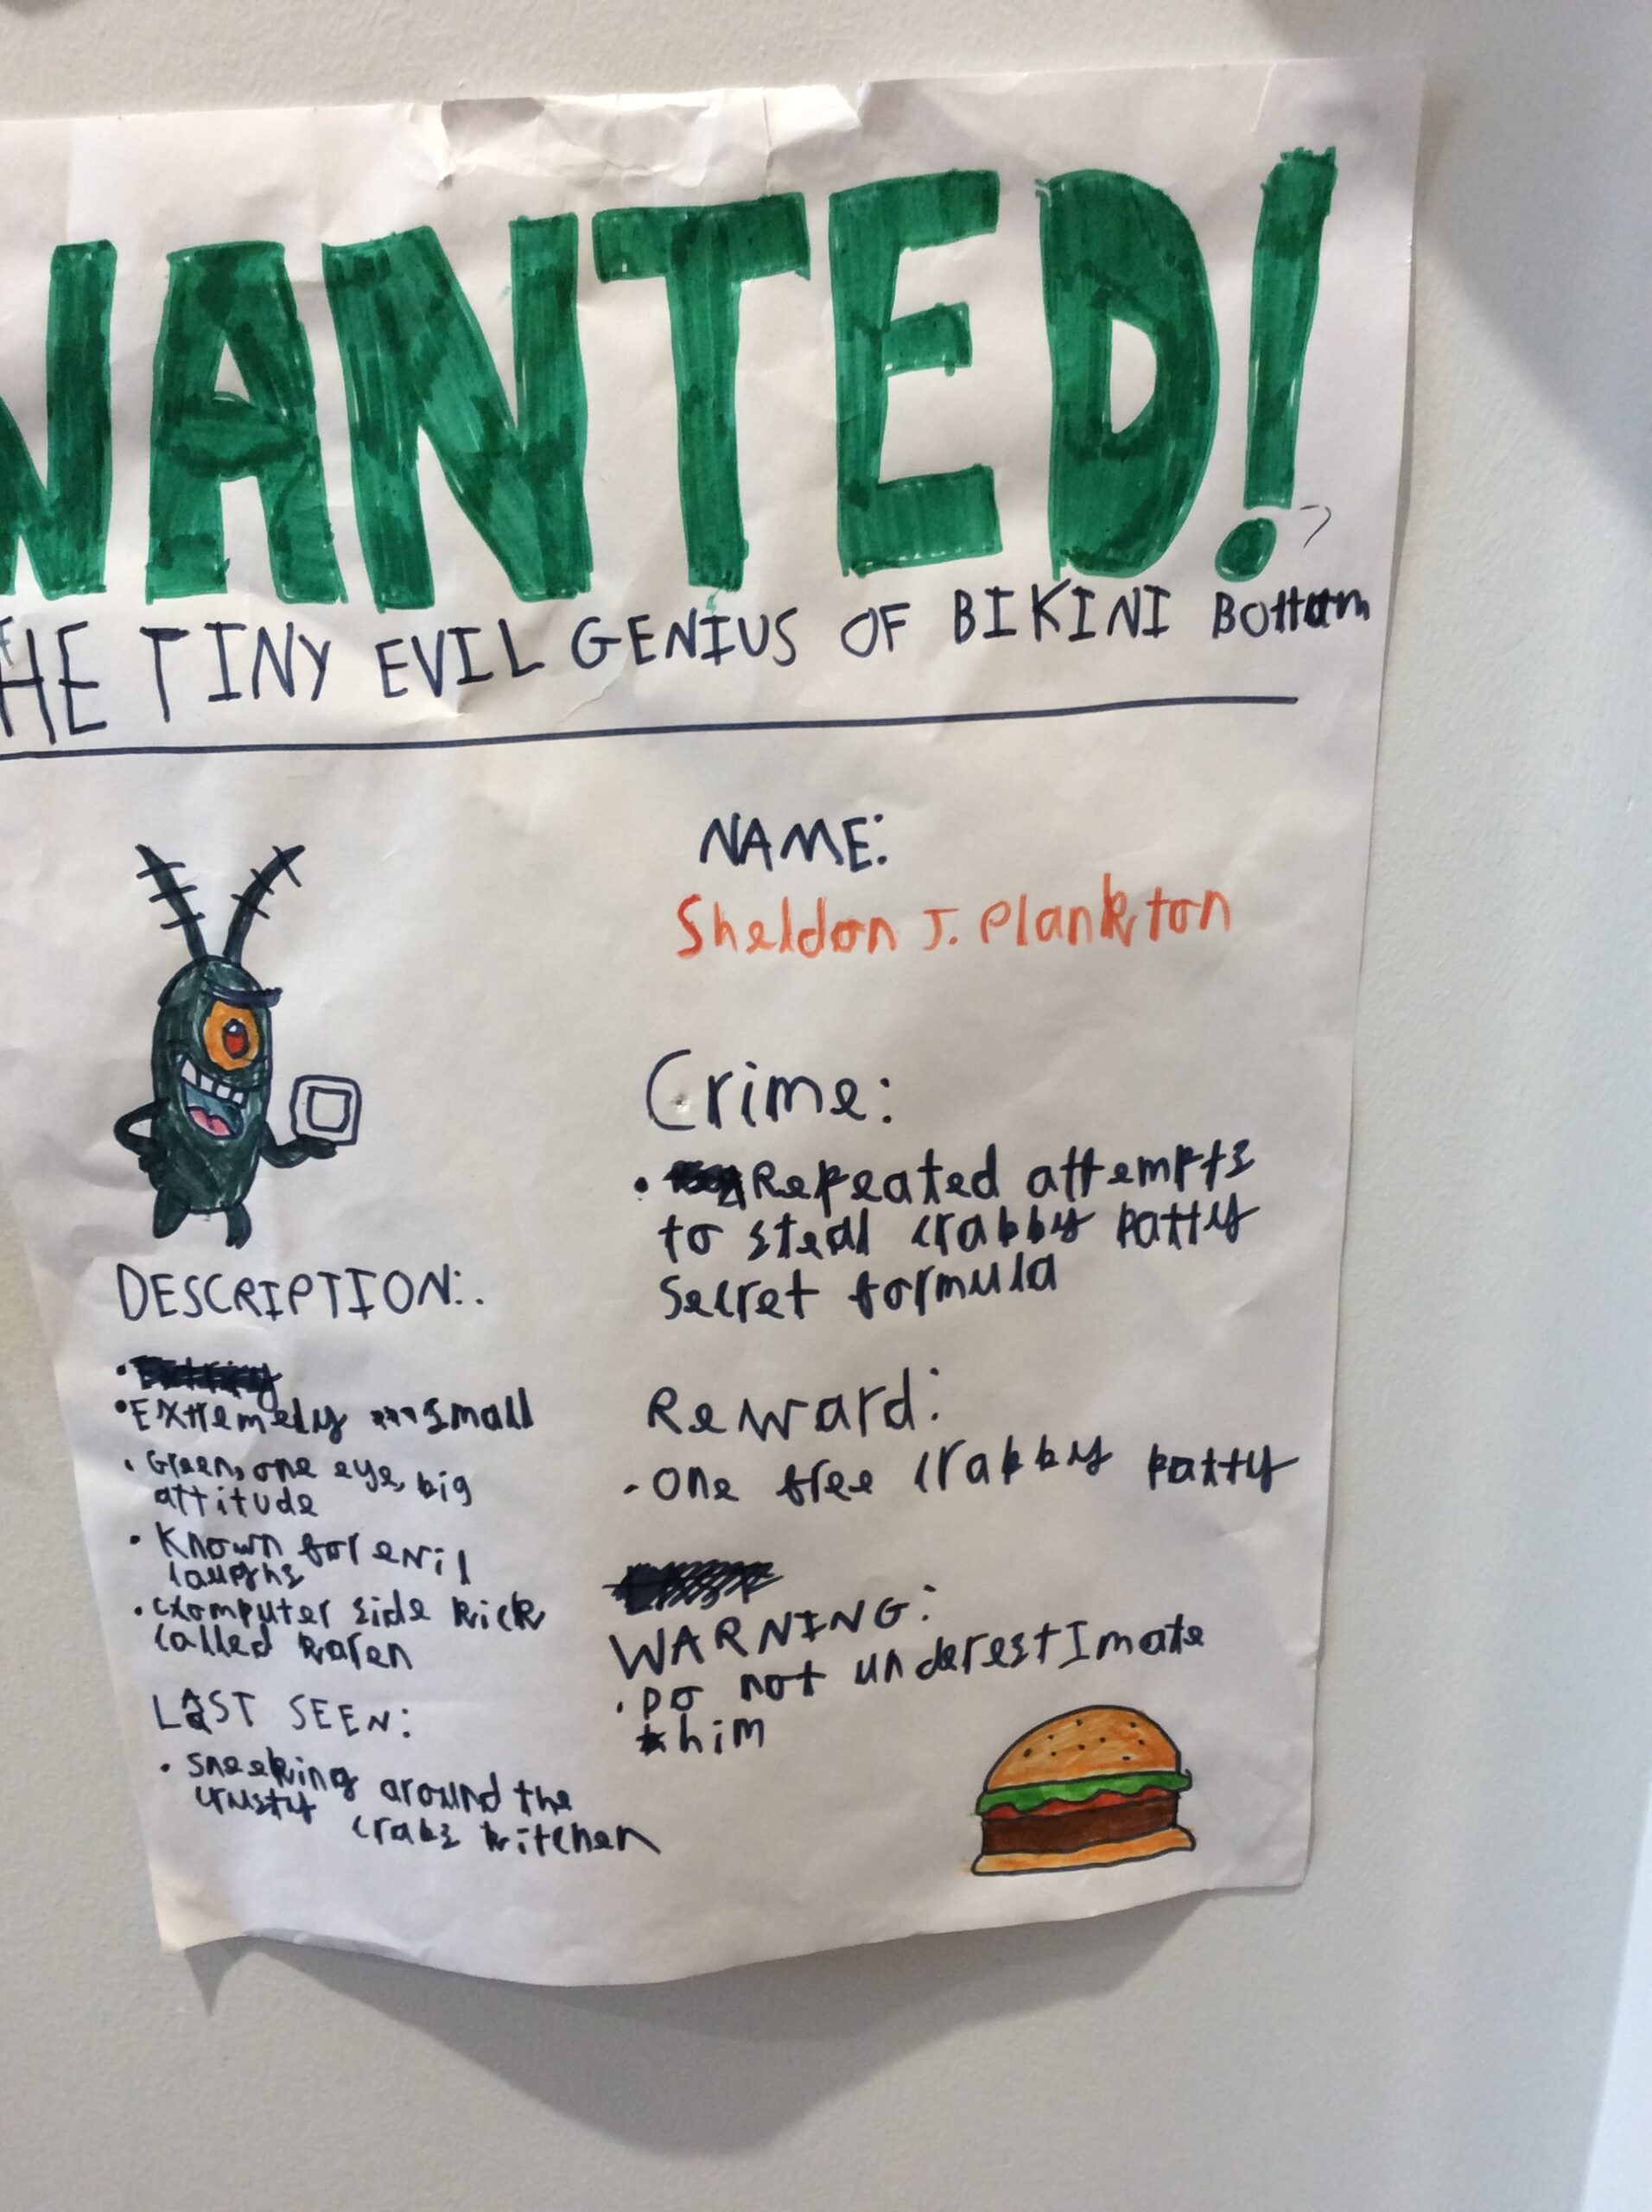 WANTED!
THE TINY EVIL GENIUS OF BIKINI Bottom
NAME:
Sheldon J. Plankton
Crime:
• Repeated attempts
to steal crabby patty
Secret formula
Reward:
- One free crabby patty
WARNING:
• Do not underestImate
him
DESCRIPTION:.
• Extremely small
• Green, one eye, big
attitude
• Known for evil
laughs
• computer side kick
called karen
LAST SEEN:
• sneeking around the
crusty crabs kitchen